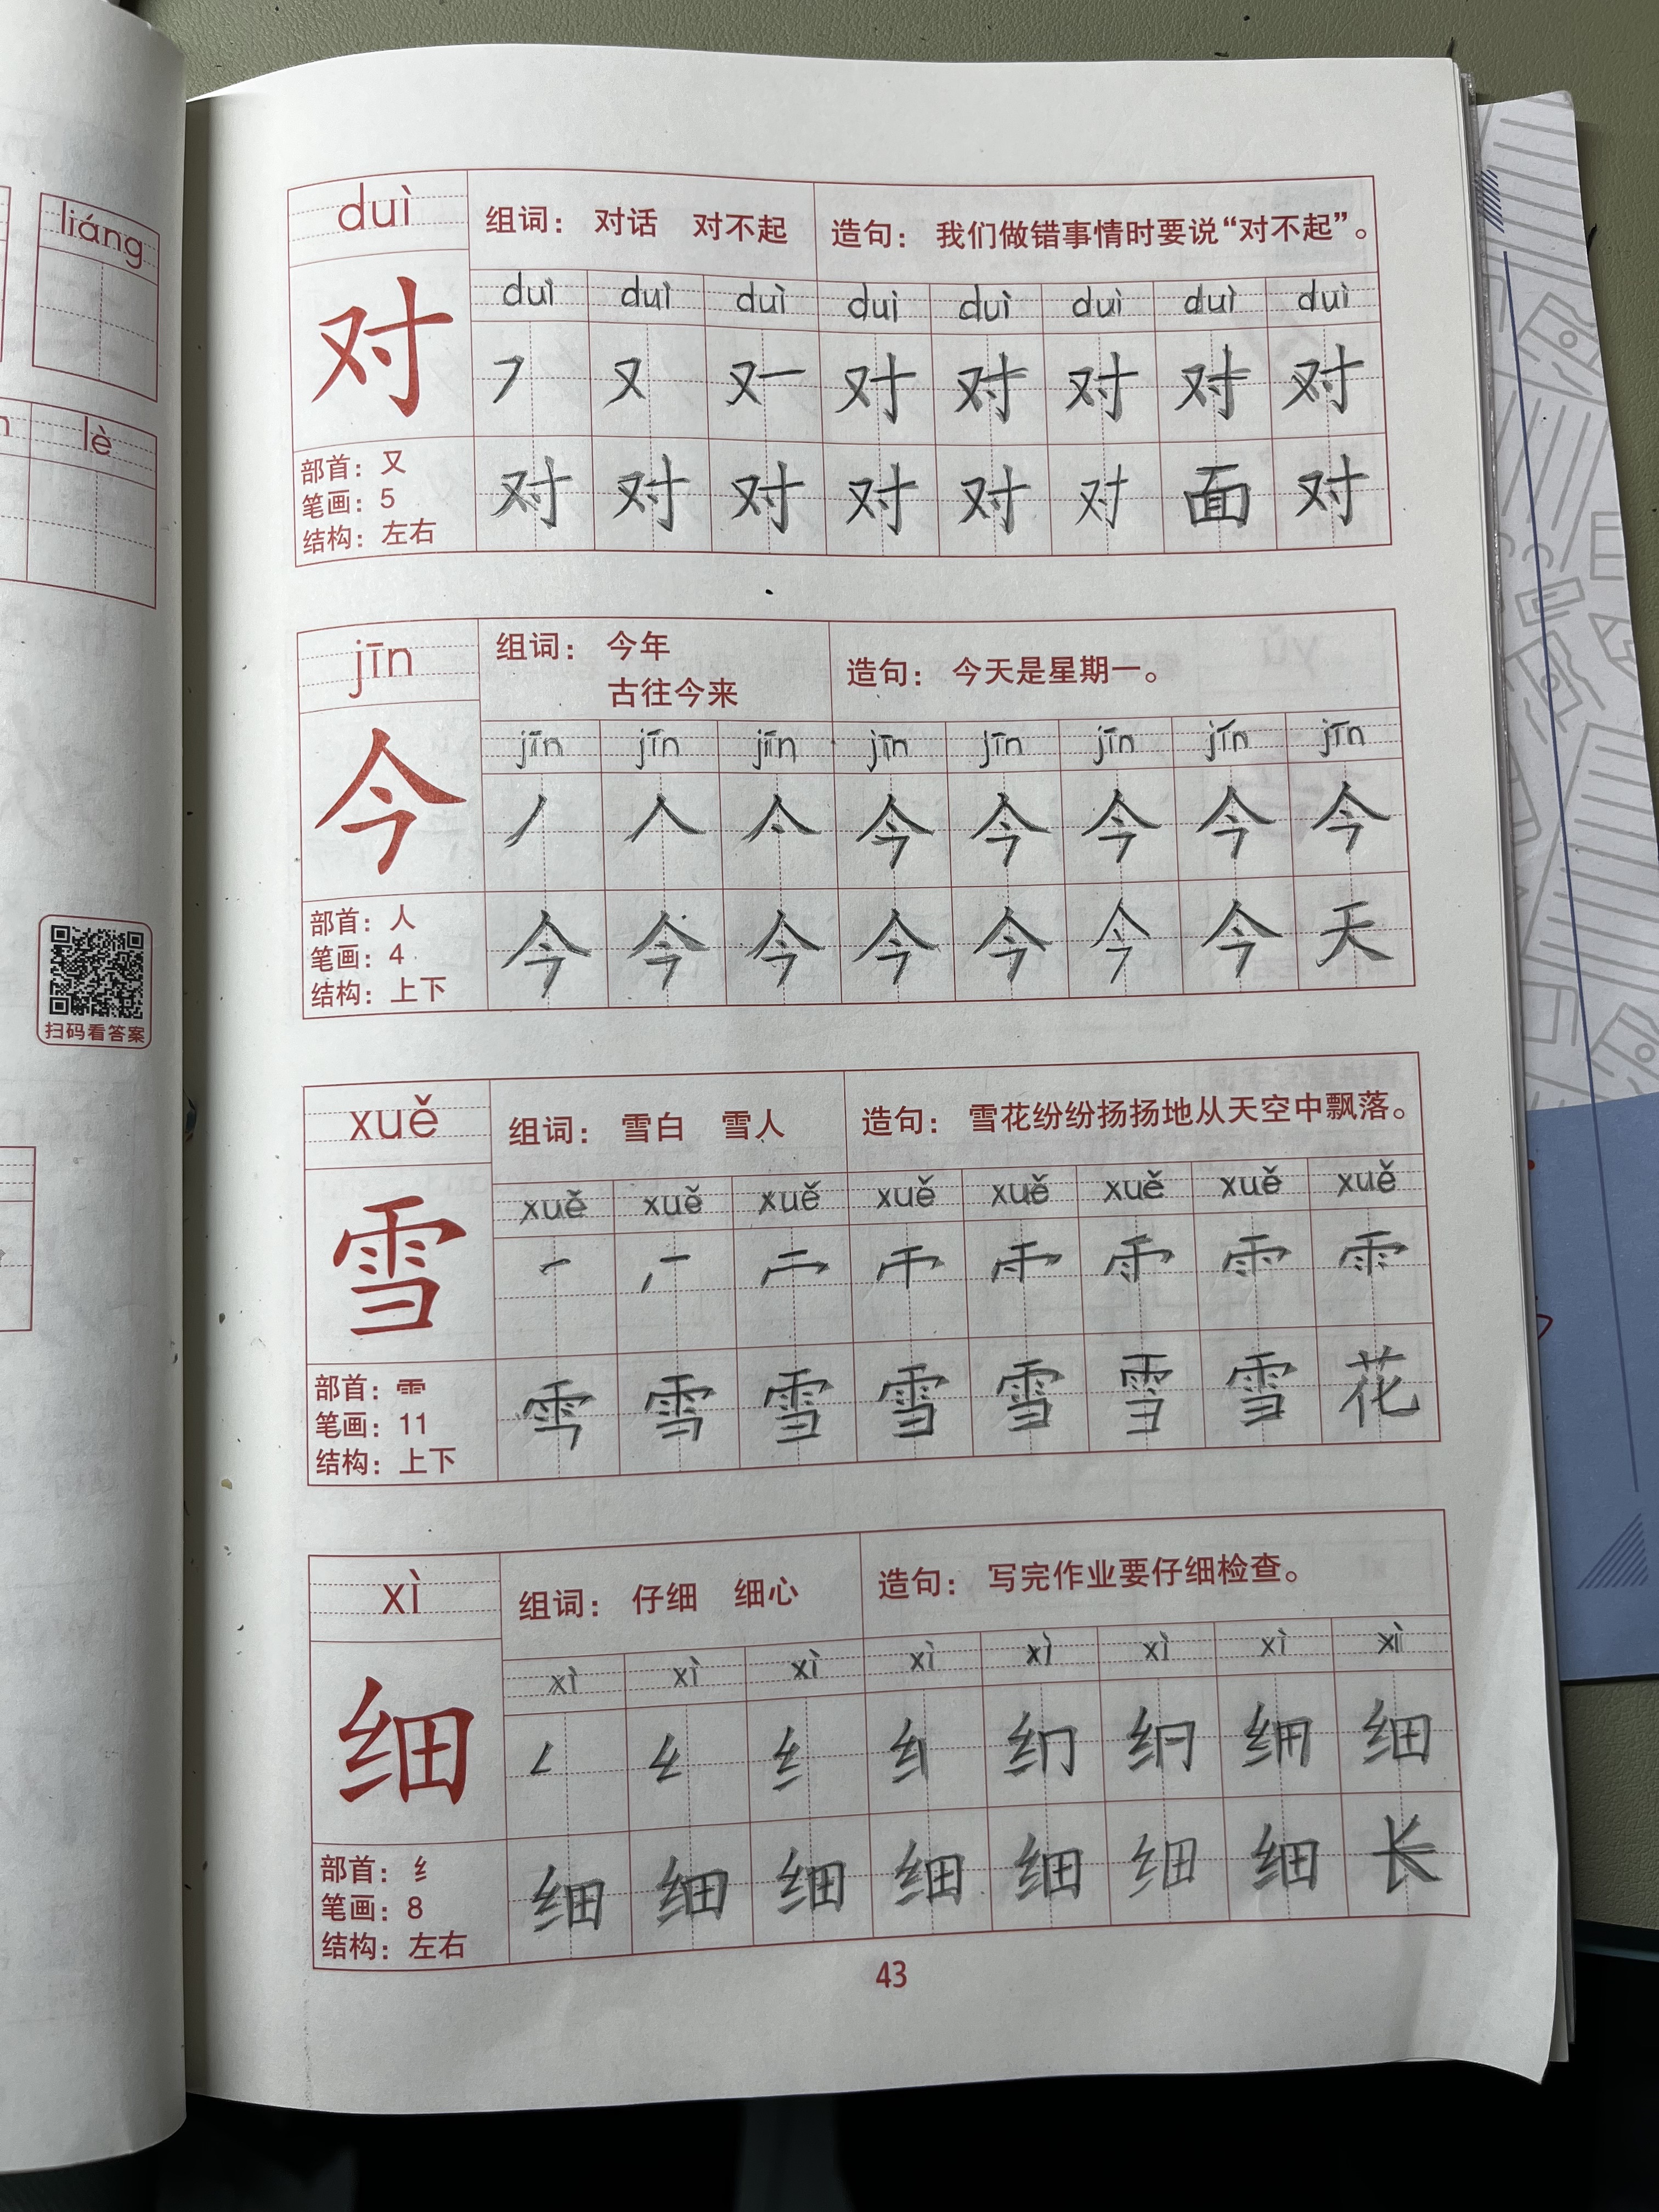 liáng
lè
扫码看答案
duì
组词： 对话 对不起
造句： 我们做错事情时要说“对不起”。
duì duì duì duì duì duì duì duì
对
又 对 对 对 对 对
部首：又
笔画：5
结构：左右
对 对 对 对 对 对 面 对
jīn
组词： 今年
古往今来
造句： 今天是星期一。
jīn jīn jīn jīn jīn jīn jīn jīn
今
丿 人 今 今 今 今 今
部首：人
笔画：4
结构：上下
今 今 今 今 今 今 今 天
xuě
组词： 雪白 雪人
造句： 雪花纷纷扬扬地从天空中飘落。
xuě xuě xuě xuě xuě xuě xuě xuě
雪
部首：⻗
笔画：11
结构：上下
雪 雪 雪 雪 雪 花
xì
组词： 仔细 细心
造句： 写完作业要仔细检查。
xì xì xì xì xì xì xì xì
细
纟 细
部首：纟
笔画：8
结构：左右
细 细 细 细 细 细 细 长
43